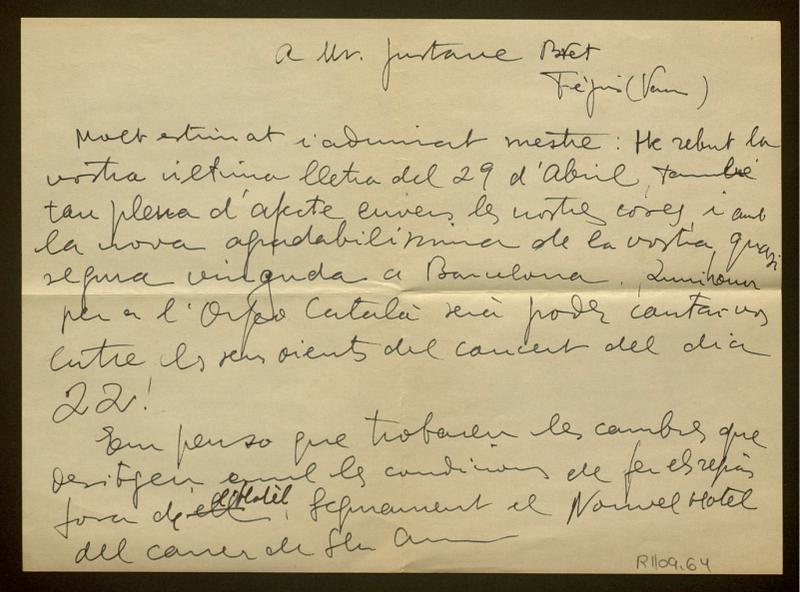 A Mr. Gustave Bret
Fréjus (Var)
Molt estimat i admirat mestre: He rebut la
vostra última lletra del 29 d'Abril,
tan plena d'afecte envers les nostres coses, i amb
la nova agradabilíssima de la vostra quasi
segura vinguda a Barcelona. Quin honor
per a l'Orfeó Català serà poder contar-vos
entre els seus oients del concert del dia
22!
Em penso que trobareu les cambres que
desitgeu amb les condicions de fer els repàs
fora de l'Hotèl. Segurament el Nouvel Hotel
del carrer de Sta Anna
R1109.64